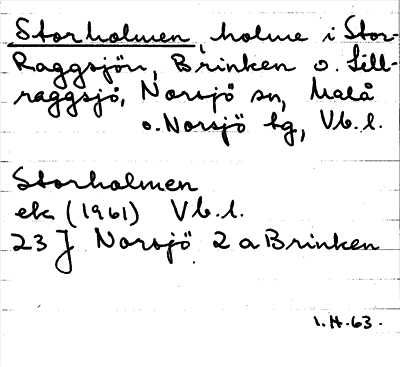 Storholmen, holme i Stor-
Raggsjön, Brinken o. Lill-
raggsjö, Norsjö sn, Malå
o. Norsjö tg, Vb. l.
Storholmen
ek (1961) Vb. l.
23 J Norsjö 2 a Brinken
1. H. 63.